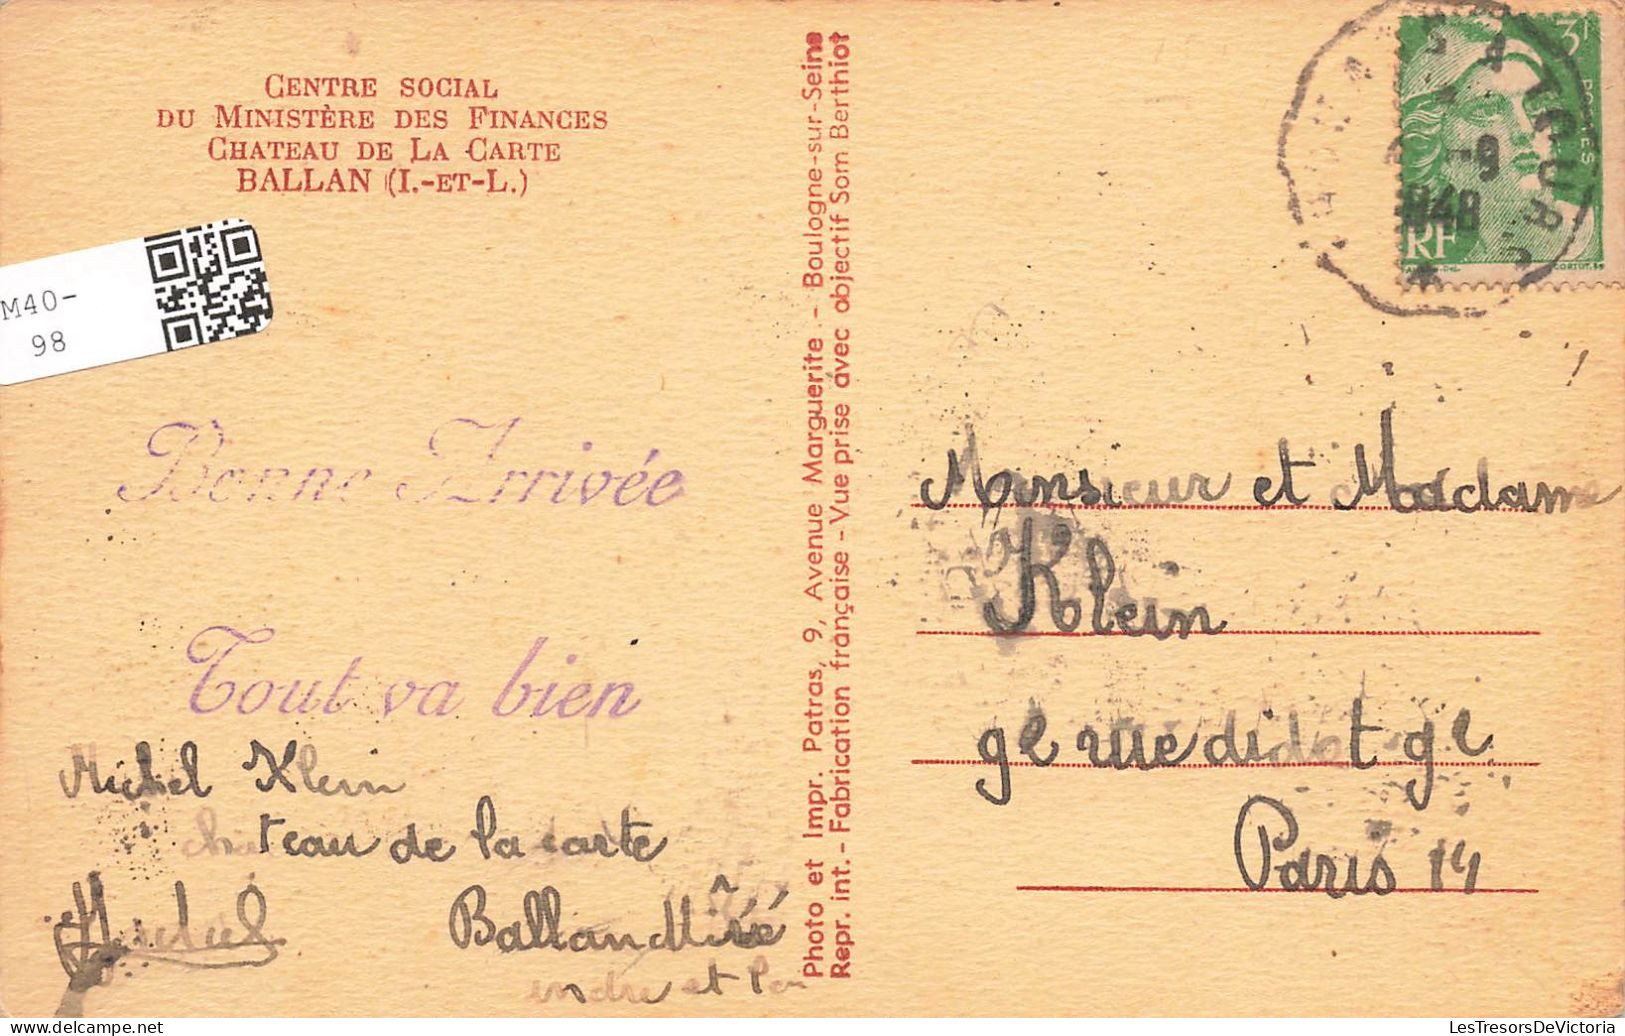 CENTRE SOCIAL
DU MINISTÈRE DES FINANCES
CHATEAU DE LA CARTE
BALLAN (I.-ET-L.)
M40-
98
Bonne Arrivée
Tout va bien
Michel Klein
chateau de la carte
Michel
Ballan Miré
indre et
Photo et Impr. Patras, 9, Avenue Marguerite - Boulogne-sur-Seine
Repr. int. - Fabrication française - Vue prise avec objectif Som Berthiot
3F
POSTES
RF
A TOURS
-9
1948
Monsieur et Madame
Klein
9e rue didot 9e
Paris 14
hipostcard.com
LesTresorsDeVictoria